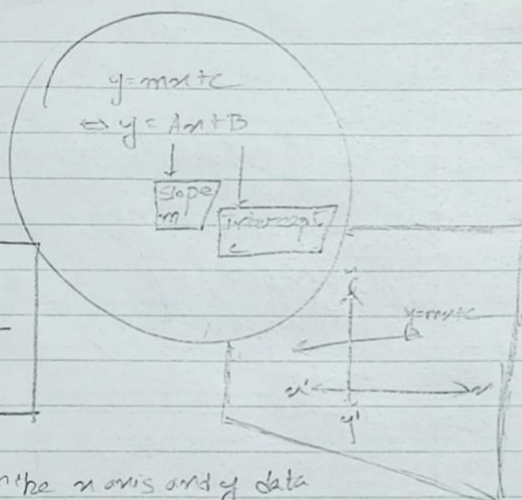 y=mx+c
⇔ y = Ax+B
slope
m
Intercept
c
y
y=mx+c
x' x
y'
the x axis and y data